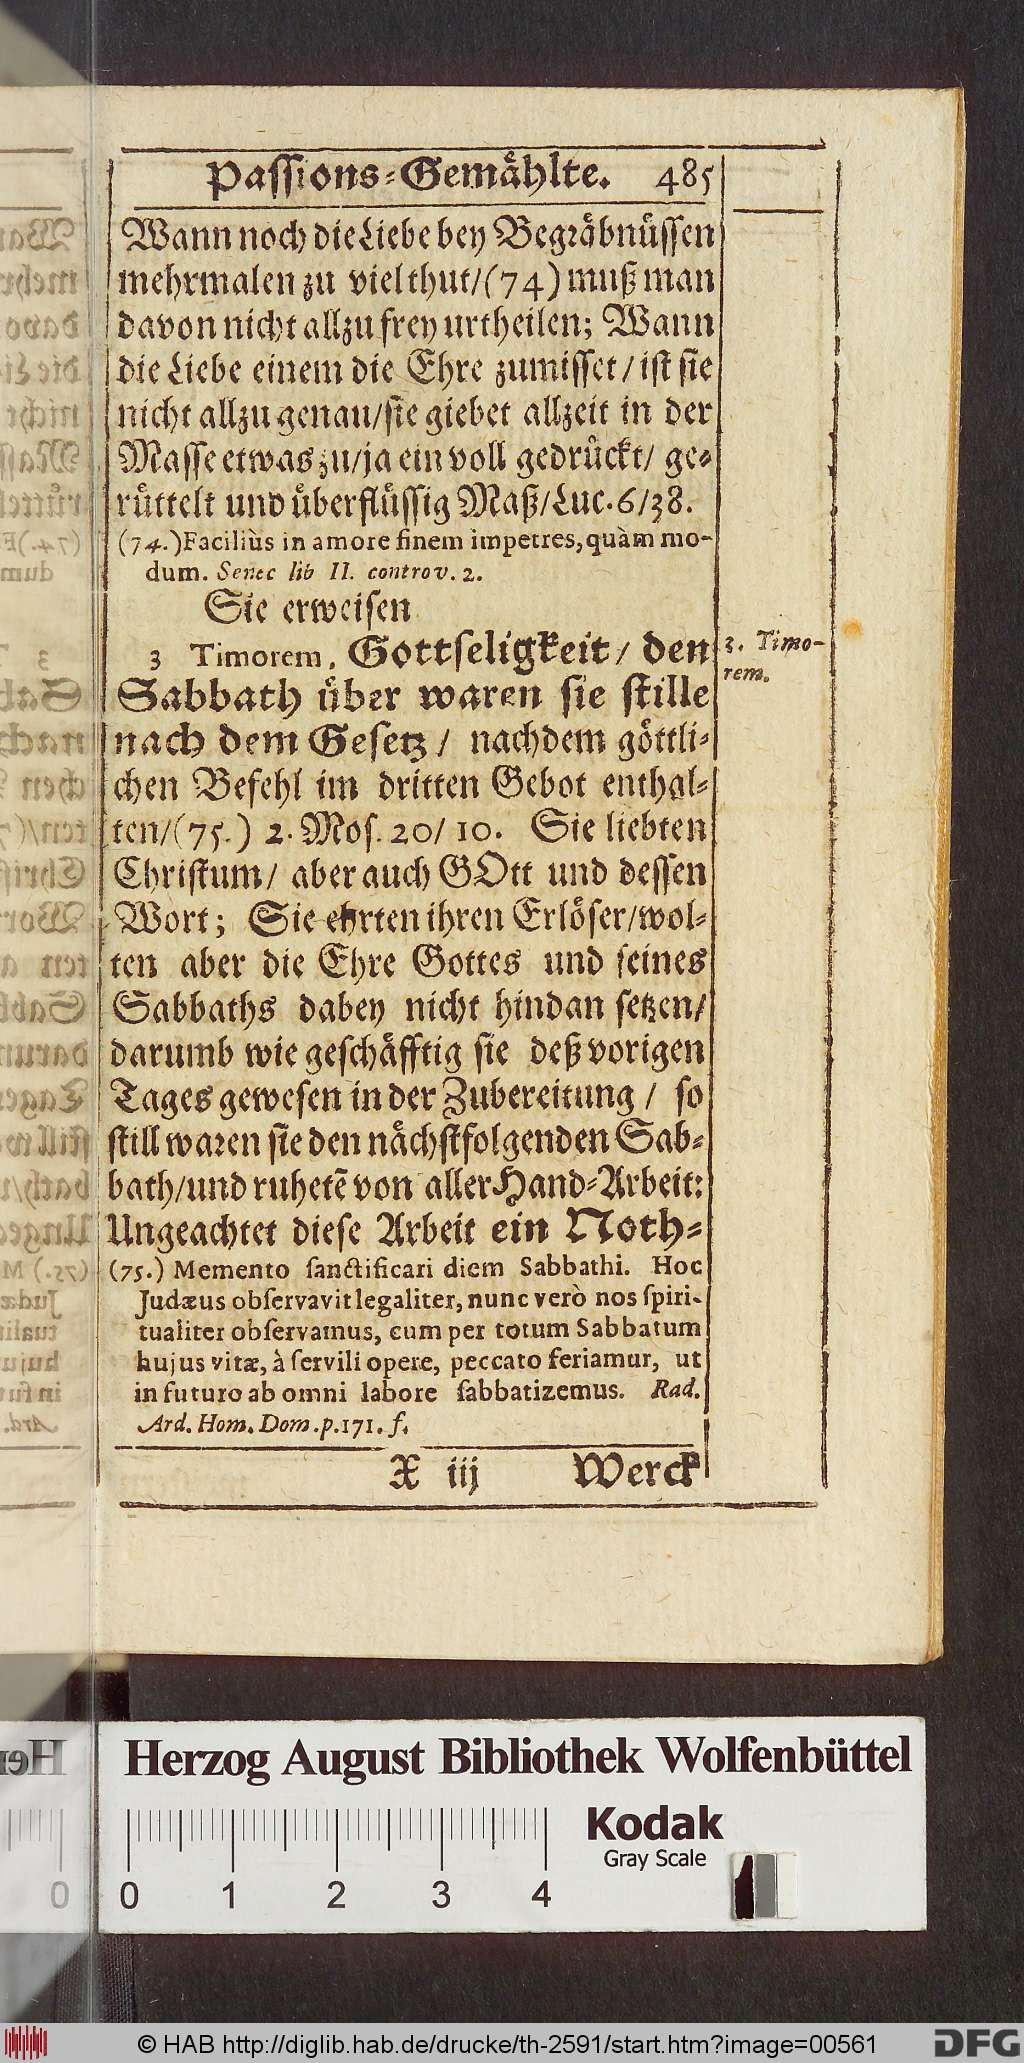 Passions-Gemåhlte. 485
Wann noch die Liebe bey Begråbnůssen
mehrmalen zu viel thut/(74) muß man
davon nicht allzu frey urtheilen; Wann
die Liebe einem die Ehre zumisset/ ist sie
nicht allzu genau/sie giebet allzeit in der
Masse etwas zu/ja ein voll gedrůckt/ ge-
růttelt und ůberflůssig Maß/Luc.6/38.
(74.)Faciliùs in amore finem impetres, quàm mo-
dum. Senec lib II. controv. 2.
Sie erweisen
3 Timorem, Gottseligkeit/ den
3. Timo-
rem.
Sabbath ůber waren sie stille
nach dem Gesetz/ nachdem göttli-
chen Befehl im dritten Gebot enthal-
ten/(75.) 2. Mos. 20/10. Sie liebten
Christum/ aber auch GOtt und dessen
Wort; Sie ehrten ihren Erlöser/wol-
ten aber die Ehre Gottes und seines
Sabbaths dabey nicht hindan setzen/
darumb wie geschåfftig sie deß vorigen
Tages gewesen in der Zubereitung/ so
still waren sie den nåchstfolgenden Sab-
bath/und ruhetē von aller Hand-Arbeit:
Ungeachtet diese Arbeit ein Noth-
(75.) Memento sanctificari diem Sabbathi. Hoc
Judæus observavit legaliter, nunc verò nos spiri-
tualiter observamus, cum per totum Sabbatum
hujus vitæ, à servili opere, peccato feriamur, ut
in futuro ab omni labore sabbatizemus. Rad.
Ard. Hom. Dom. p.171. f.
X iij Werck
Herzog August Bibliothek Wolfenbüttel
Kodak
Gray Scale
0 0 1 2 3 4
© HAB http://diglib.hab.de/drucke/th-2591/start.htm?image=00561
DFG